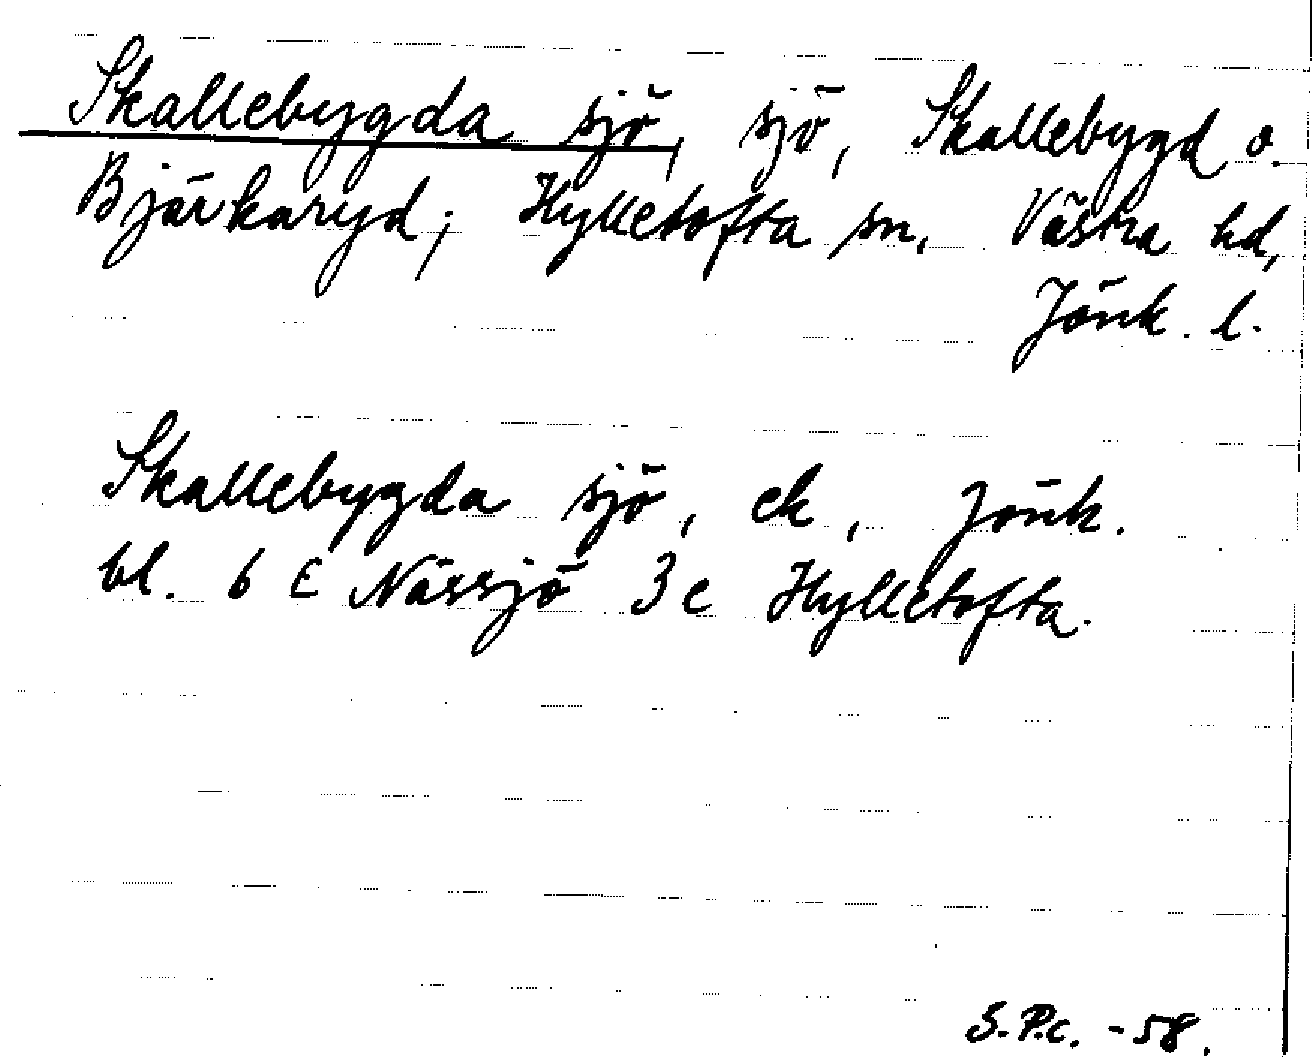 Skallebygda sjö, sjö, Skallebygd o.
Bjärkaryd, Hylletofta sn, Västra hd,
Jönk. l.
Skallebygda sjö, ek, Jönk.
bl. 6 E Nässjö 3 c Hylletofta.
S.P.c. -58.